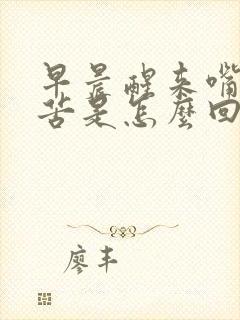 早晨醒来嘴
苦是怎麼回
廖丰